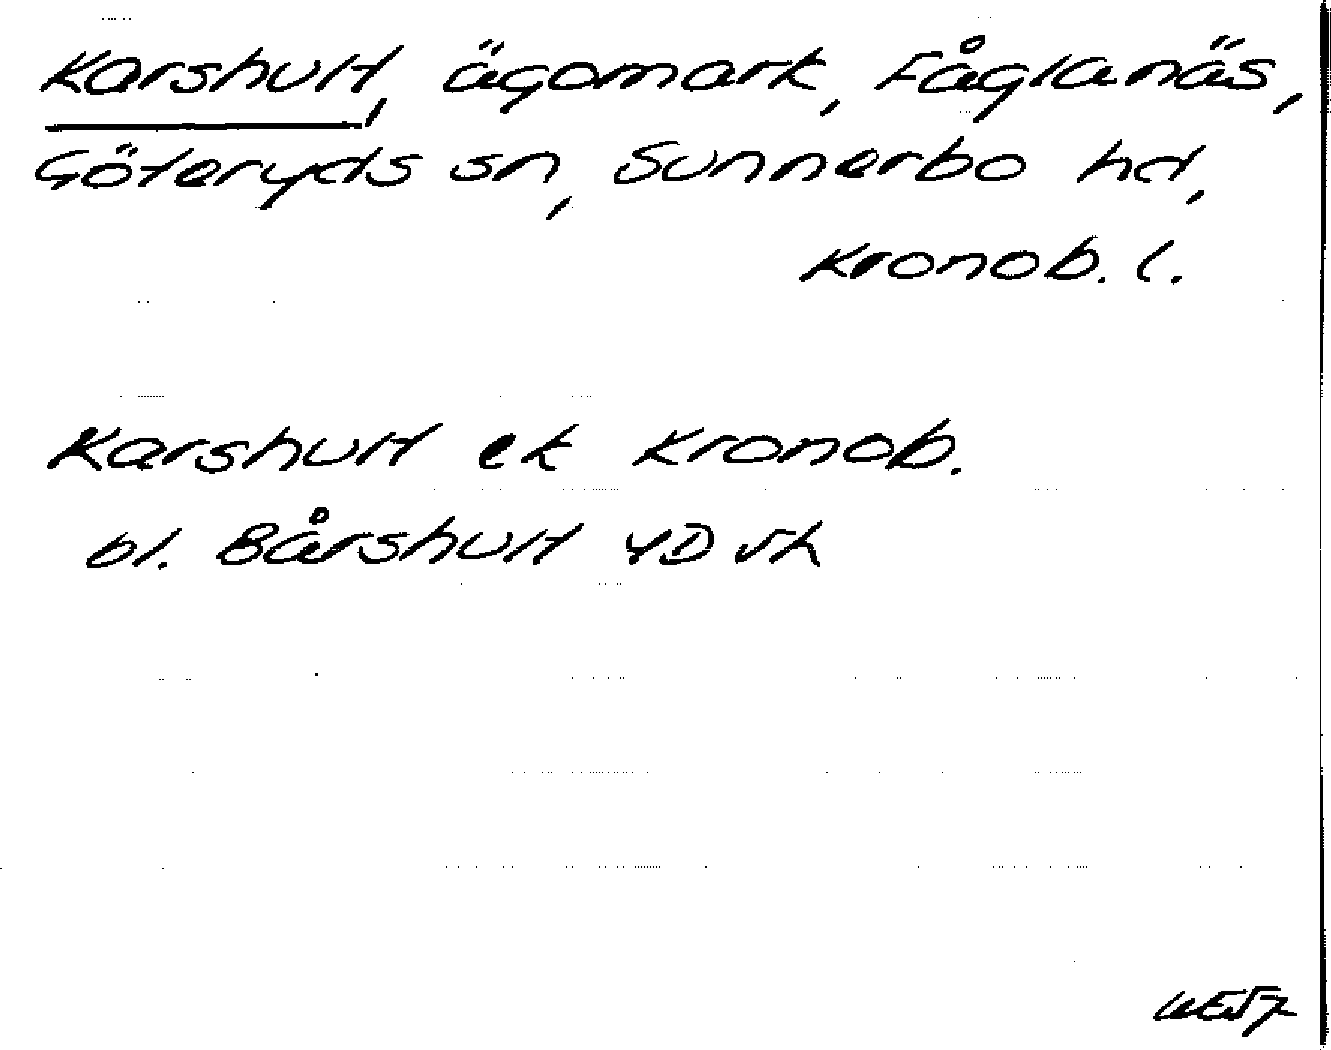 Karshult, ägomark, Fåglanäs,
Göteryds sn, Sunnerbo hd,
Kronob. l.
Karshult ek Kronob.
bl. Bårshult 4D